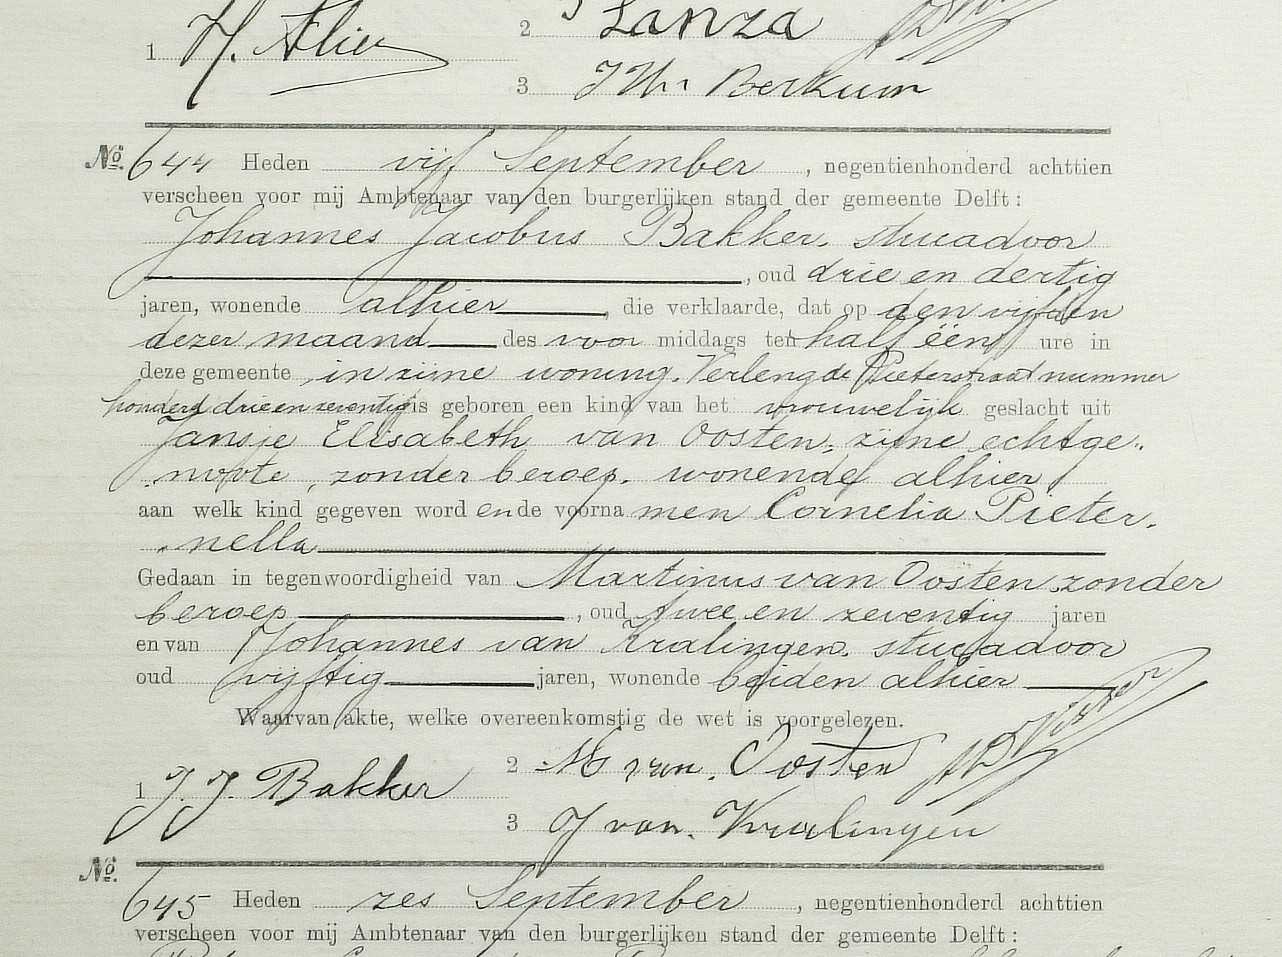 1 H. Alie
2 Lanza
3 J Th. Berkum
No. 644 Heden vijf September, negentienhonderd achttien
verscheen voor mij Ambtenaar van den burgerlijken stand der gemeente Delft:
Johannes Jacobus Bakker, stucadoor
, oud drie en dertig
jaren, wonende alhier, die verklaarde, dat op den vijfden
dezer maand des voor middags ten half één ure in
deze gemeente in zijne woning. Verlengde Pieterstraat nummer
honderd drieenzeventig is geboren een kind van het vrouwelijk geslacht uit
Jansje Elisabeth van Oosten, zijne echtge-
noote, zonder beroep, wonende alhier
aan welk kind gegeven worden de voornamen Cornelia Pieter-
nella
Gedaan in tegenwoordigheid van Martinus van Oosten zonder
beroep, oud twee en zeventig jaren
en van Johannes van Kralingen, stucadoor
oud vijftig jaren, wonende beiden alhier
Waarvan akte, welke overeenkomstig de wet is voorgelezen.
1 J. J. Bakker
2 M van Oosten
3 J van Kralingen
No. 645 Heden zes September, negentienhonderd achttien
verscheen voor mij Ambtenaar van den burgerlijken stand der gemeente Delft: